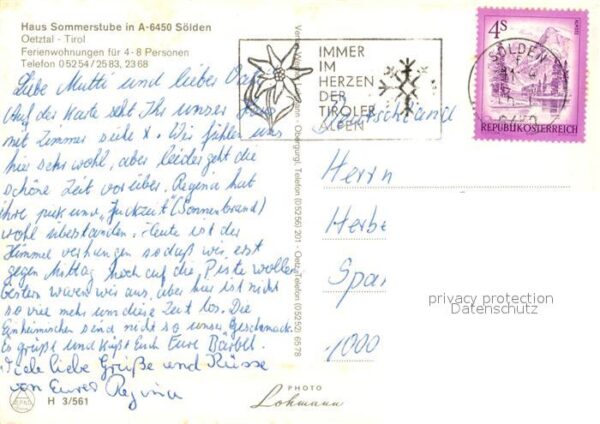 Haus Sommerstube in A-6450 Sölden
Oetztal - Tirol
Ferienwohnungen für 4-8 Personen
Telefon 05254/2583, 2368
Liebe Mutti und lieber Vati
Auf der Karte seht Ihr unser
mit Zimmer siehe x. Wir fühlen uns
hier sehr wohl, aber leider geht die
schöne Zeit vorüber. Regina hat
ihre pick und "Juckzeit" (Sonnenbrand)
wohl überstanden. Heute ist der
Himmel verhangen sodaß wir erst
gegen Mittag hoch auf die Piste wollen
gestern waren wir aus, aber hier ist nicht
so viel mehr um diese Zeit los. Die
Einheimischen sind nicht so unser Geschmack.
Es grüßt und küßt Euch Eure Bärbel.
Viele liebe Grüße und Küsse
von Eurer Regina
H 3/561
PHOTO
Lohmann
Obergurgl, Telefon (05256) 201 - Oetz, Telefon (05252) 6578
IMMER
IM
HERZEN
DER
TIROLER
ALPEN
SÖLDEN
6450
4S
REPUBLIK ÖSTERREICH
Deutschland
Herrn
Herbe
Spar
1000
privacy protection
Datenschutz